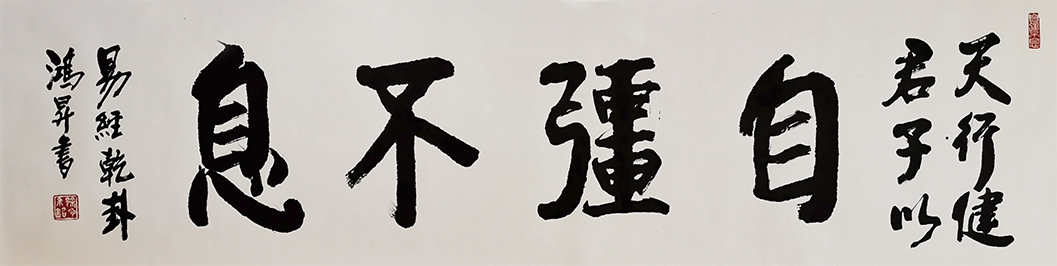 天行健
君子以
自彊不息
易經乾卦
鴻昇書